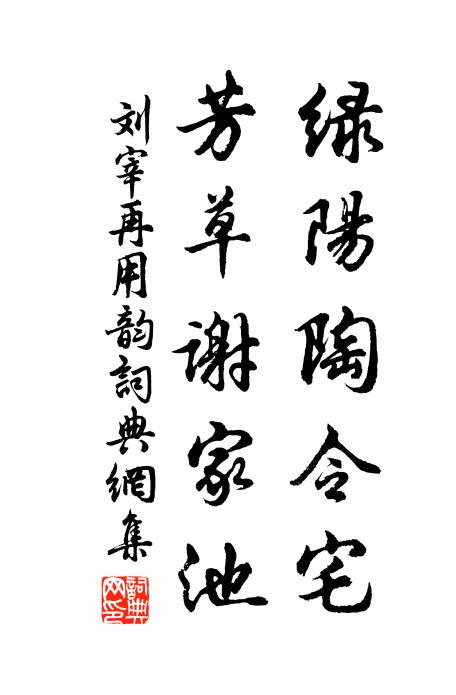 緑陽陶令宅
芳草谢家池
刘宰再用韵詞典網集
詞典網印